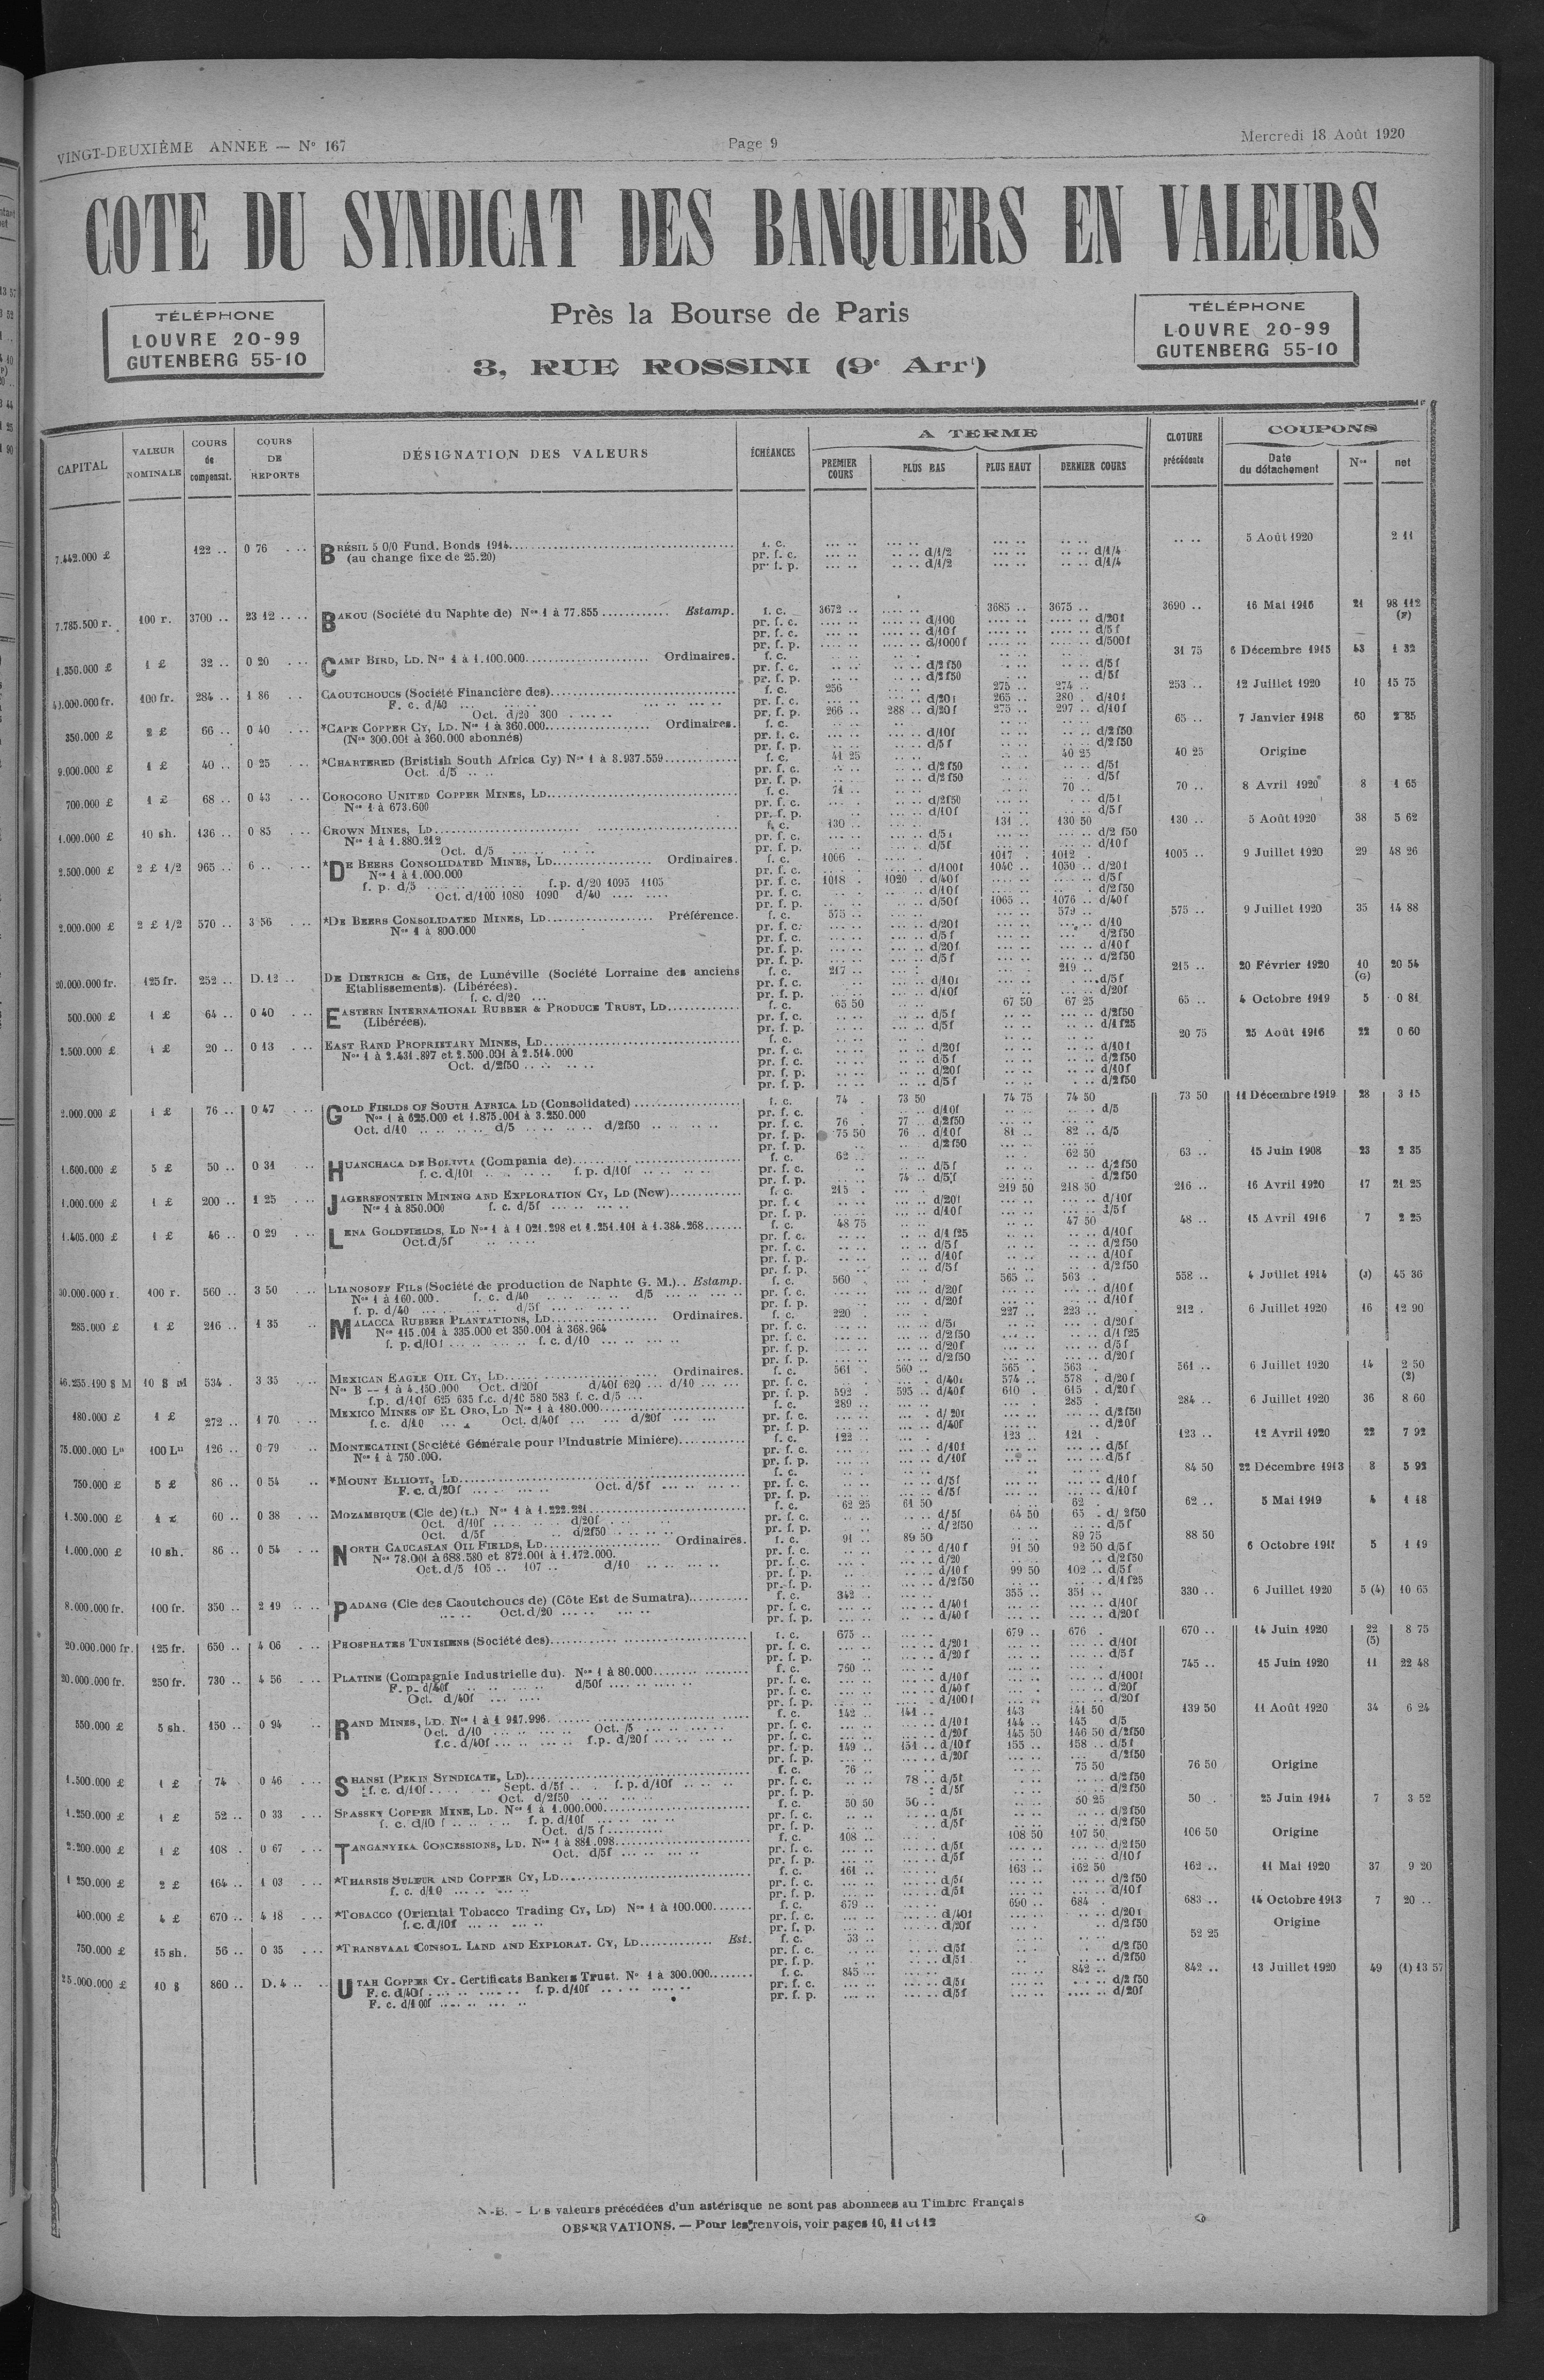 VINGT-DEUXIÈME ANNEE — N° 167
Page 9
Mercredi 18 Août 1920
COTE DU SYNDICAT DES BANQUIERS EN VALEURS
TÉLÉPHONE
LOUVRE 20-99
GUTENBERG 55-10
Près la Bourse de Paris
3, RUE ROSSINI (9e Arrt)
TÉLÉPHONE
LOUVRE 20-99
GUTENBERG 55-10
CAPITAL VALEUR NOMINALE COURS de compensat. COURS DE REPORTS DÉSIGNATION DES VALEURS ÉCHÉANCES A TERME PREMIER COURS PLUS BAS PLUS HAUT DERNIER COURS CLOTURE précédente COUPONS Date du détachement Nos net
7.442.000 £ 122 .. 0 76 BRÉSIL 5 0/0 Fund. Bonds 1914 f. c. 5 Août 1920 2 11
(au change fixe de 25.20) pr. f. c. d/1/2 d/1/4
pr. f. p. d/1/2 d/1/4
7.785.500 r. 100 r. 3700 .. 23 12 BAKOU (Société du Naphte de) Nos 1 à 77.855 Estamp. f. c. 3672 .. 3685 .. 3675 .. 3690 .. 16 Mai 1916 21 98 112
pr. f. c. d/100 d/20f
pr. f. c. d/10f d/5f
pr. f. p. d/1000f d/500f
1.350.000 £ 1 £ 32 .. 0 20 CAMP BIRD, LD. Nos 1 à 1.100.000 Ordinaires. f. c. 31 75 6 Décembre 1915 43 1 32
pr. f. c. d/2f50 d/5f
pr. f. p. d/2f50 d/5f
100 fr. 284 .. 1 86 CAOUTCHOUCS (Société Financière des) f. c. 256 275 .. 274 .. 253 .. 12 Juillet 1920 10 15 75
F. c. d/40 pr. f. c. d/20f 265 .. 280 . d/10f
Oct. d/20 300 pr. f. p. 266 .. 288 .. d/20f 275 .. 297 .. d/10f
350.000 £ 2 £ 66 .. 0 40 *CAPE COPPER CY, LD. Nos 1 à 360.000 Ordinaires. f. c. 65 .. 7 Janvier 1918 60 2 85
(Nos 300.001 à 360.000 abonnés) pr. f. c. d/10f d/2f50
pr. f. p. d/5f d/2f50
9.000.000 £ 1 £ 40 .. 0 25 *CHARTERED (Bristish South Africa Cy) Nos 1 à 8.937.559 f. c. 41 25 40 25 40 25 Origine
Oct. d/5 pr. f. c. d/2f50 d/5f
pr. f. p. d/2f50 d/5f
700.000 £ 1 £ 68 .. 0 43 COROCORO UNITED COPPER MINES, LD f. c. 71 .. 70 .. 70 .. 8 Avril 1920 8 1 65
Nos 1 à 673.600 pr. f. c. d/2f50 d/5f
pr. f. p. d/10f d/5f
1.000.000 £ 10 sh. 136 .. 0 85 CROWN MINES, LD f. c. 130 .. 131 .. 130 50 130 .. 5 Août 1920 38 5 62
Nos 1 à 1.880.212 pr. f. c. d/5f d/2f50
Oct. d/5 pr. f. p. d/5f d/10f
2.500.000 £ 2 £ 1/2 965 .. 6 .. *DE BEERS CONSOLIDATED MINES, LD Ordinaires. f. c. 1006 .. 1017 . 1012 . 1005 .. 9 Juillet 1920 29 48 26
Nos 1 à 1.000.000 pr. f. c. d/100f 1040 .. 1030 .. d/20f
f. p. d/5 f.p. d/20 1095 1105 pr. f. c. 1018 . 1020 . d/40f d/5f
Oct. d/100 1080 1090 d/40 pr. f. c. d/10f d/2f50
pr. f. p. d/50f 1065 .. 1076 .. d/40f
2.000.000 £ 2 £ 1/2 570 .. 3 56 *DE BEERS CONSOLIDATED MINES, LD Préférence. f. c. 575 .. 579 .. 575 .. 9 Juillet 1920 35 14 88
Nos 1 à 800.000 pr. f. c. d/20f d/10
pr. f. c. d/5f d/2f50
pr. f. p. d/20f d/10f
pr. f. p. d/5f d/2f50
20.000.000 fr. 125 fr. 252 .. D.12 .. DE DIETRICH & CIE, de Lunéville (Société Lorraine des anciens f. c. 217 .. 219 .. 215 .. 20 Février 1920 10 (G) 20 54
Etablissements). (Libérées). pr. f. c. d/10f d/5f
f. c. d/20 pr. f. p. d/10f d/20f
500.000 £ 1 £ 64 .. 0 40 EASTERN INTERNATIONAL RUBBER & PRODUCE TRUST, LD f. c. 65 50 67 50 67 25 65 .. 4 Octobre 1919 5 0 81
(Libérées). pr. f. c. d/5f d/2f50
pr. f. p. d/5f d/1f25
2.500.000 £ 1 £ 20 .. 0 13 EAST RAND PROPRIETARY MINES, LD f. c. 20 75 25 Août 1916 22 0 60
Nos 1 à 2.431.897 et 2.500.001 à 2.514.000 pr. f. c. d/20f d/10f
Oct. d/2f50 pr. f. c. d/5f d/2f50
pr. f. p. d/20f d/10f
pr. f. p. d/5f d/2f50
2.000.000 £ 1 £ 76 .. 0 47 GOLD FIELDS OF SOUTH AFRICA LD (Consolidated) f. c. 74 . 73 50 74 75 74 50 73 50 11 Décembre 1919 28 3 15
Nos 1 à 625.000 et 1.875.001 à 3.250.000 pr. f. c. d/10f d/5
Oct. d/10 d/5 d/2f50 pr. f. c. 76 . 77 .. d/2f50
pr. f. p. 75 50 76 .. d/10f 81 .. 82 .. d/5
pr. f. p. d/2f50
1.600.000 £ 5 £ 50 .. 0 31 HUANCHACA DE BOLIVIA (Compania de) f. c. 62 .. 62 50 63 .. 15 Juin 1908 23 2 35
f. c. d/10f f. p. d/10f pr. f. c. d/5f d/2f50
pr. f. p. 74 .. d/5f d/2f50
1.000.000 £ 1 £ 200 .. 1 25 JAGERSFONTEIN MINING AND EXPLORATION CY, LD (New) f. c. 215 . 219 50 218 50 216 .. 16 Avril 1920 17 21 25
Nos 1 à 850.000 f. c. d/5f pr. f. c. d/20f d/10f
pr. f. p. d/10f d/5f
1.405.000 £ 1 £ 46 .. 0 29 LENA GOLDFIELDS, LD Nos 1 à 1 021.298 et 1.251.101 à 1.384.268 f. c. 48 75 47 50 48 .. 15 Avril 1916 7 2 25
Oct.d/5f pr. f. c. d/1f25 d/10f
pr. f. c. d/5f d/2f50
pr. f. p. d/10f d/10f
pr. f. p. d/5f d/2f50
30.000.000 r. 100 r. 560 .. 3 50 LIANOSOFF FILS (Société de production de Naphte G. M.) Estamp. f. c. 560 565 .. 563 . 558 .. 4 Juillet 1914 (J) 45 36
Nos 1 à 160.000. f. c. d/40 d/5 pr. f. c. d/20f d/10f
f. p. d/40 d/5f pr. f. p. d/20f d/10f
285.000 £ 1 £ 216 .. 1 35 MALACCA RUBBER PLANTATIONS, LD Ordinaires. f. c. 220 .. 227 .. 223 .. 212 . 6 Juillet 1920 16 12 90
Nos 115.001 à 335.000 et 350.001 à 368.964 pr. f. c. d/5f d/20f
f. p. d/10f f. c. d/10 pr. f. c. d/2f50 d/1f25
pr. f. p. d/20f d/5f
pr. f. p. d/2f50 d/20f
46.255.490 $ M 10 $ M 534 . 3 35 MEXICAN EAGLE OIL CY, LD Ordinaires. f. c. 561 . 560 .. 565 . 563 . 561 .. 6 Juillet 1920 14 2 50 (2)
Nos B — 1 à 4.150.000 Oct. d/20f d/40f 620 d/10 pr. f. c. d/40f 574 .. 578 . d/20f
f.p. d/10f 625 635 f.c. d/10 580 583 f. c. d/5 pr. f. p. 592 595 .. d/40f 610 . 615 . d/20f
180.000 £ 1 £ 272 .. 1 70 MEXICO MINES OF EL ORO, LD Nos 1 à 180.000 f. c. 289 .. 285 . 284 .. 6 Juillet 1920 36 8 60
f. c. d/10 Oct. d/40f d/20f pr. f. c. d/20f d/2f50
pr. f. p. d/40f d/20f
75.000.000 Lit 100 Lit 126 .. 0 79 MONTECATINI (Société Générale pour l'Industrie Minière) f. c. 122 .. 123 .. 121 . 123 .. 12 Avril 1920 22 7 92
Nos 1 à 750.000. pr. f. c. d/10f d/5f
pr. f. p. d/10f d/5f
750.000 £ 5 £ 86 .. 0 54 *MOUNT ELLIOTT, LD f. c. 84 50 22 Décembre 1913 8 5 92
F. c. d/20f Oct. d/5f pr. f. c. d/5f d/10f
pr. f. p. d/5f d/10f
1.500.000 £ 1 £ 60 .. 0 38 MOZAMBIQUE (Cie de) (L) Nos 1 à 1.222.221 f. c. 62 25 61 50 62 . 62 .. 5 Mai 1919 4 1 18
Oct. d/10f d/20f pr. f. c. d/5f 64 50 65 . d/2f50
Oct. d/5f d/2f50 pr. f. p. d/2f50 d/5f
1.000.000 £ 10 sh. 86 .. 0 54 NORTH CAUCASIAN OIL FIELDS, LD Ordinaires. f. c. 91 .. 89 50 89 75 88 50 6 Octobre 5 1 19
Nos 78.001 à 688.580 et 872.001 à 1.172.000. pr. f. c. d/10f 91 50 92 50 d/5f
Oct. d/5 105 .. 107 .. d/10 pr. f. c. d/20 d/2f50
pr. f. p. d/10f 99 50 102 .. d/5f
pr. f. p. d/2f50 d/1f25
8.000.000 fr. 100 fr. 350 .. 2 19 PADANG (Cie des Caoutchoucs de) (Côte Est de Sumatra) f. c. 342 .. 355 .. 351 .. 330 .. 6 Juillet 1920 5 (4) 10 65
Oct.d/20 pr. f. c. d/40f d/10f
pr. f. p. d/40f d/20f
20.000.000 fr. 125 fr. 650 .. 4 06 PHOSPHATES TUNISIENS (Société des) f. c. 675 .. 679 .. 676 . 670 .. 14 Juin 1920 22 (5) 8 75
pr. f. c. d/20f d/10f
pr. f. p. d/20f d/5f
20.000.000 fr. 250 fr. 730 .. 4 56 PLATINE (Compagnie Industrielle du). Nos 1 à 80.000 f. c. 760 .. 745 .. 15 Juin 1920 11 22 48
F. p. d/40f d/50f pr. f. c. d/10f d/100f
Oct. d/40f pr. f. c. d/40f d/20f
pr. f. p. d/100f d/20f
550.000 £ 5 sh. 150 .. 0 94 RAND MINES, LD. Nos 1 à 1 947.996 f. c. 142 .. 141 .. 143 141 50 139 50 11 Août 1920 34 6 24
Oct. d/10 Oct. /5 pr. f. c. d/10f 144 .. 145 d/5
f.c. d/40f f.p. d/20f pr. f. c. d/20f 145 50 146 50 d/2f50
pr. f. p. 149 .. 151 .. d/10f 155 .. 158 .. d/5f
pr. f. p. d/20f d/2f50
1.500.000 £ 1 £ 74 0 46 SHANSI (PEKIN SYNDICATE, LD) f. c. 76 .. 75 50 76 50 Origine
f. c. d/10f Sept. d/5f f. p. d/10f pr. f. c. 78 .. d/5f d/2f50
Oct. d/2f50 pr. f. p. d/5f d/2f50
1.250.000 £ 1 £ 52 .. 0 33 SPASSKY COPPER MINE, LD. Nos 1 à 1.000.000 f. c. 50 50 50 .. 50 25 50 .. 25 Juin 1914 7 3 52
f. c. d/10 f f. p. d/10f pr. f. c. d/5f d/2f50
Oct. d/5 f pr. f. p. d/5f d/2f50
2.200.000 £ 1 £ 108 . 0 67 TANGANYIKA CONCESSIONS, LD. Nos 1 à 881.098 f. c. 108 .. 108 50 107 50 106 50 Origine
Oct. d/5f pr. f. c. d/5f d/2f50
pr. f. p. d/5f d/10f
1 250.000 £ 2 £ 164 .. 1 03 *THARSIS SULFUR AND COPPER CY, LD f. c. 161 .. 163 .. 162 50 162 .. 11 Mai 1920 37 9 20
f. c. d/10 pr. f. c. d/5f d/2f50
pr. f. p. d/5f d/10f
400.000 £ 4 £ 670 .. 4 18 *TOBACCO (Oriental Tobacco Trading CY, LD) Nos 1 à 100.000 f. c. 679 .. 690 .. 684 . 683 .. 14 Octobre 1913 7 20 ..
f.c. d/10f pr. f. c. d/40f d/20f
pr. f. p. d/20f d/2f50
750.000 £ 15 sh. 56 .. 0 35 *TRANSVAAL CONSOL. LAND AND EXPLORAT. CY, LD Est. f. c. 53 .. 52 25 Origine
pr. f. c. d/5f d/2f50
pr. f. p. d/5f d/2f50
25.000.000 £ 10 $ 860 .. D. 4 .. UTAH COPPER CY. Certificats Bankers Trust. Nos 1 à 300.000 f. c. 845 .. 842 .. 842 .. 13 Juillet 1920 49 (1) 13 57
F. c. d/40f f. p. d/10f pr. f. c. d/5f d/2f50
F. c. d/100f pr. f. p. d/5f d/20f
N.-B. - Les valeurs précédées d'un astérisque ne sont pas abonnees au Timbre Français
OBSERVATIONS. — Pour les renvois, voir pages 10, 11 et 12